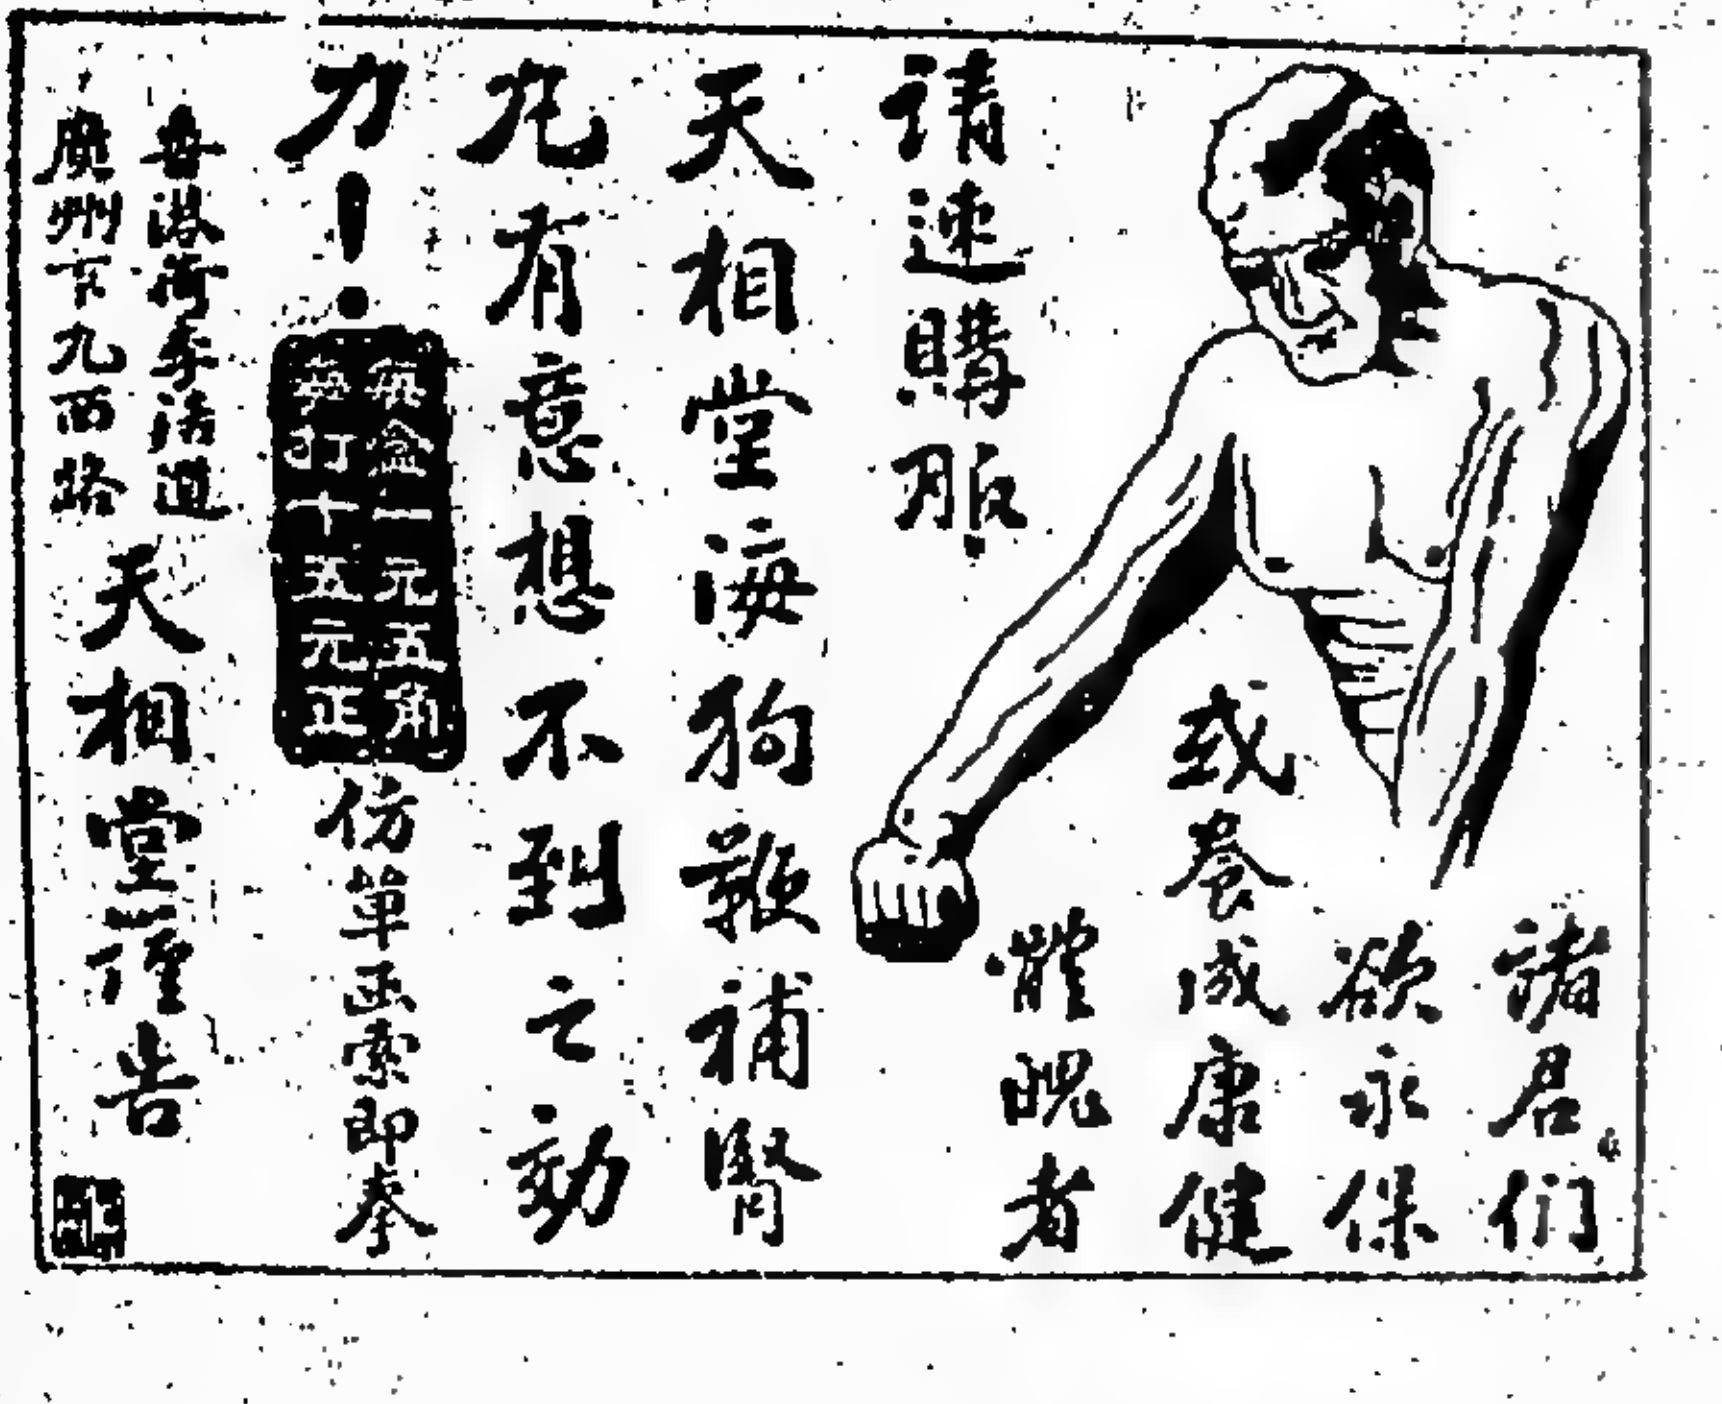 諸君们
欲永保
或養成康健
體魄者
請速購服
天相堂海狗鞭補腎
丸有意想不到之効
力！
每盒一元五角
打十五元正
仿單函索即奉
香港荷李活道
廣州下九西路
天相堂謹告